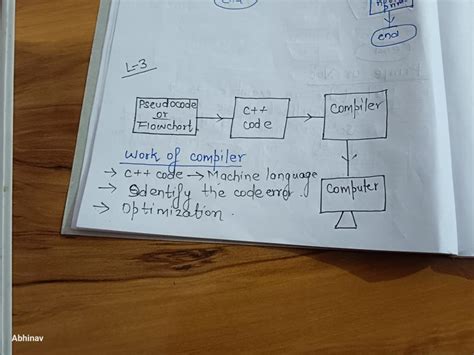 end
end
L-3
Pseudocode
or
Flowchart
C++
code
Compiler
Computer
Work of compiler
→ C++ code → Machine language
→ Identify the code error.
→ Optimization.
Abhinav